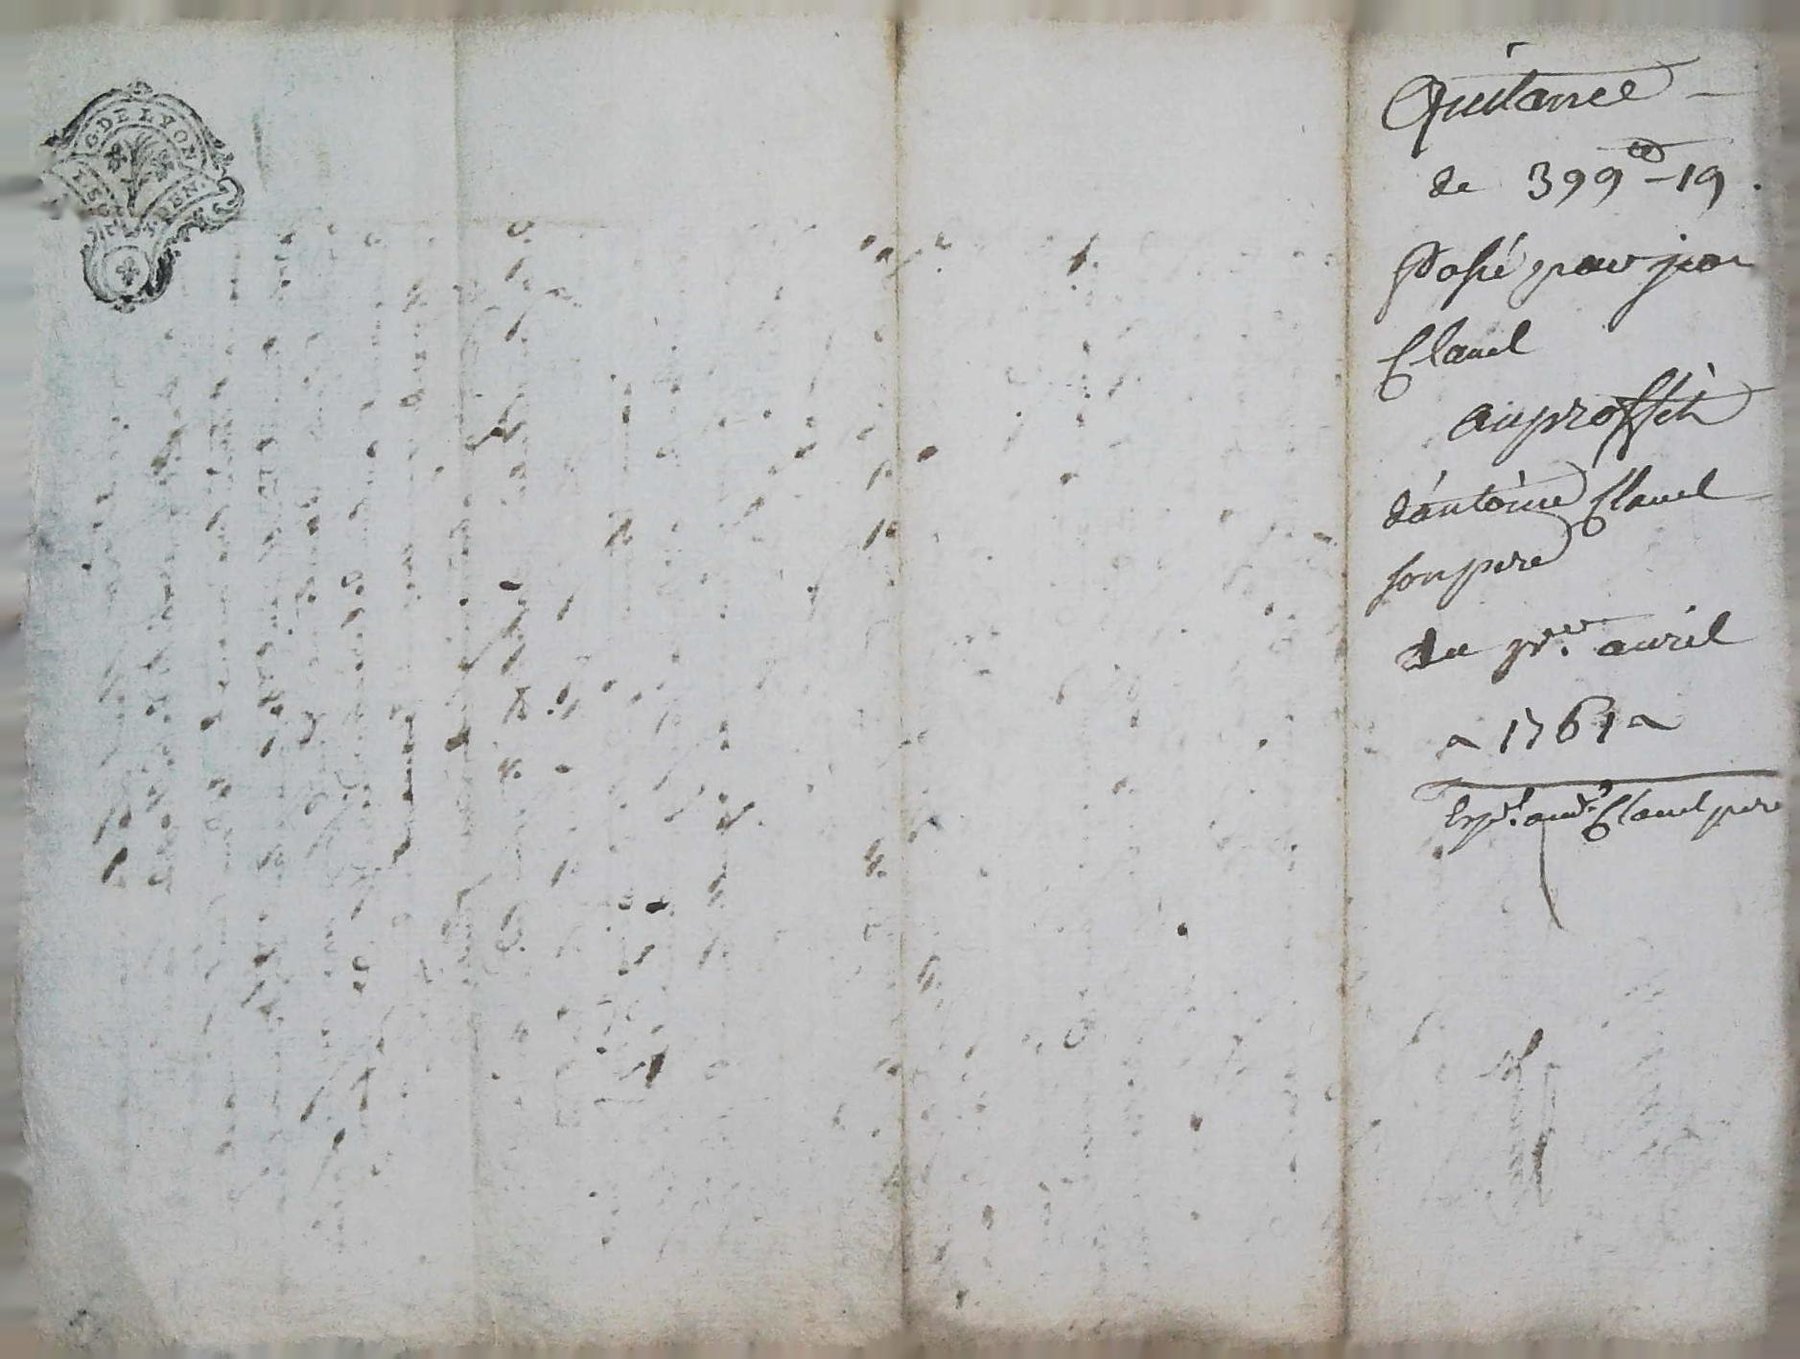 G. DE LYON
DEN.
Quitance
de 399 ᵗᵗ - 19.
Passé par jean
Clavel
au proffit
d'antoine Clavel
son pere
du pr.ᵉʳ avril
1761
Exp.ᵗ ant.ᵉ Clavel pere